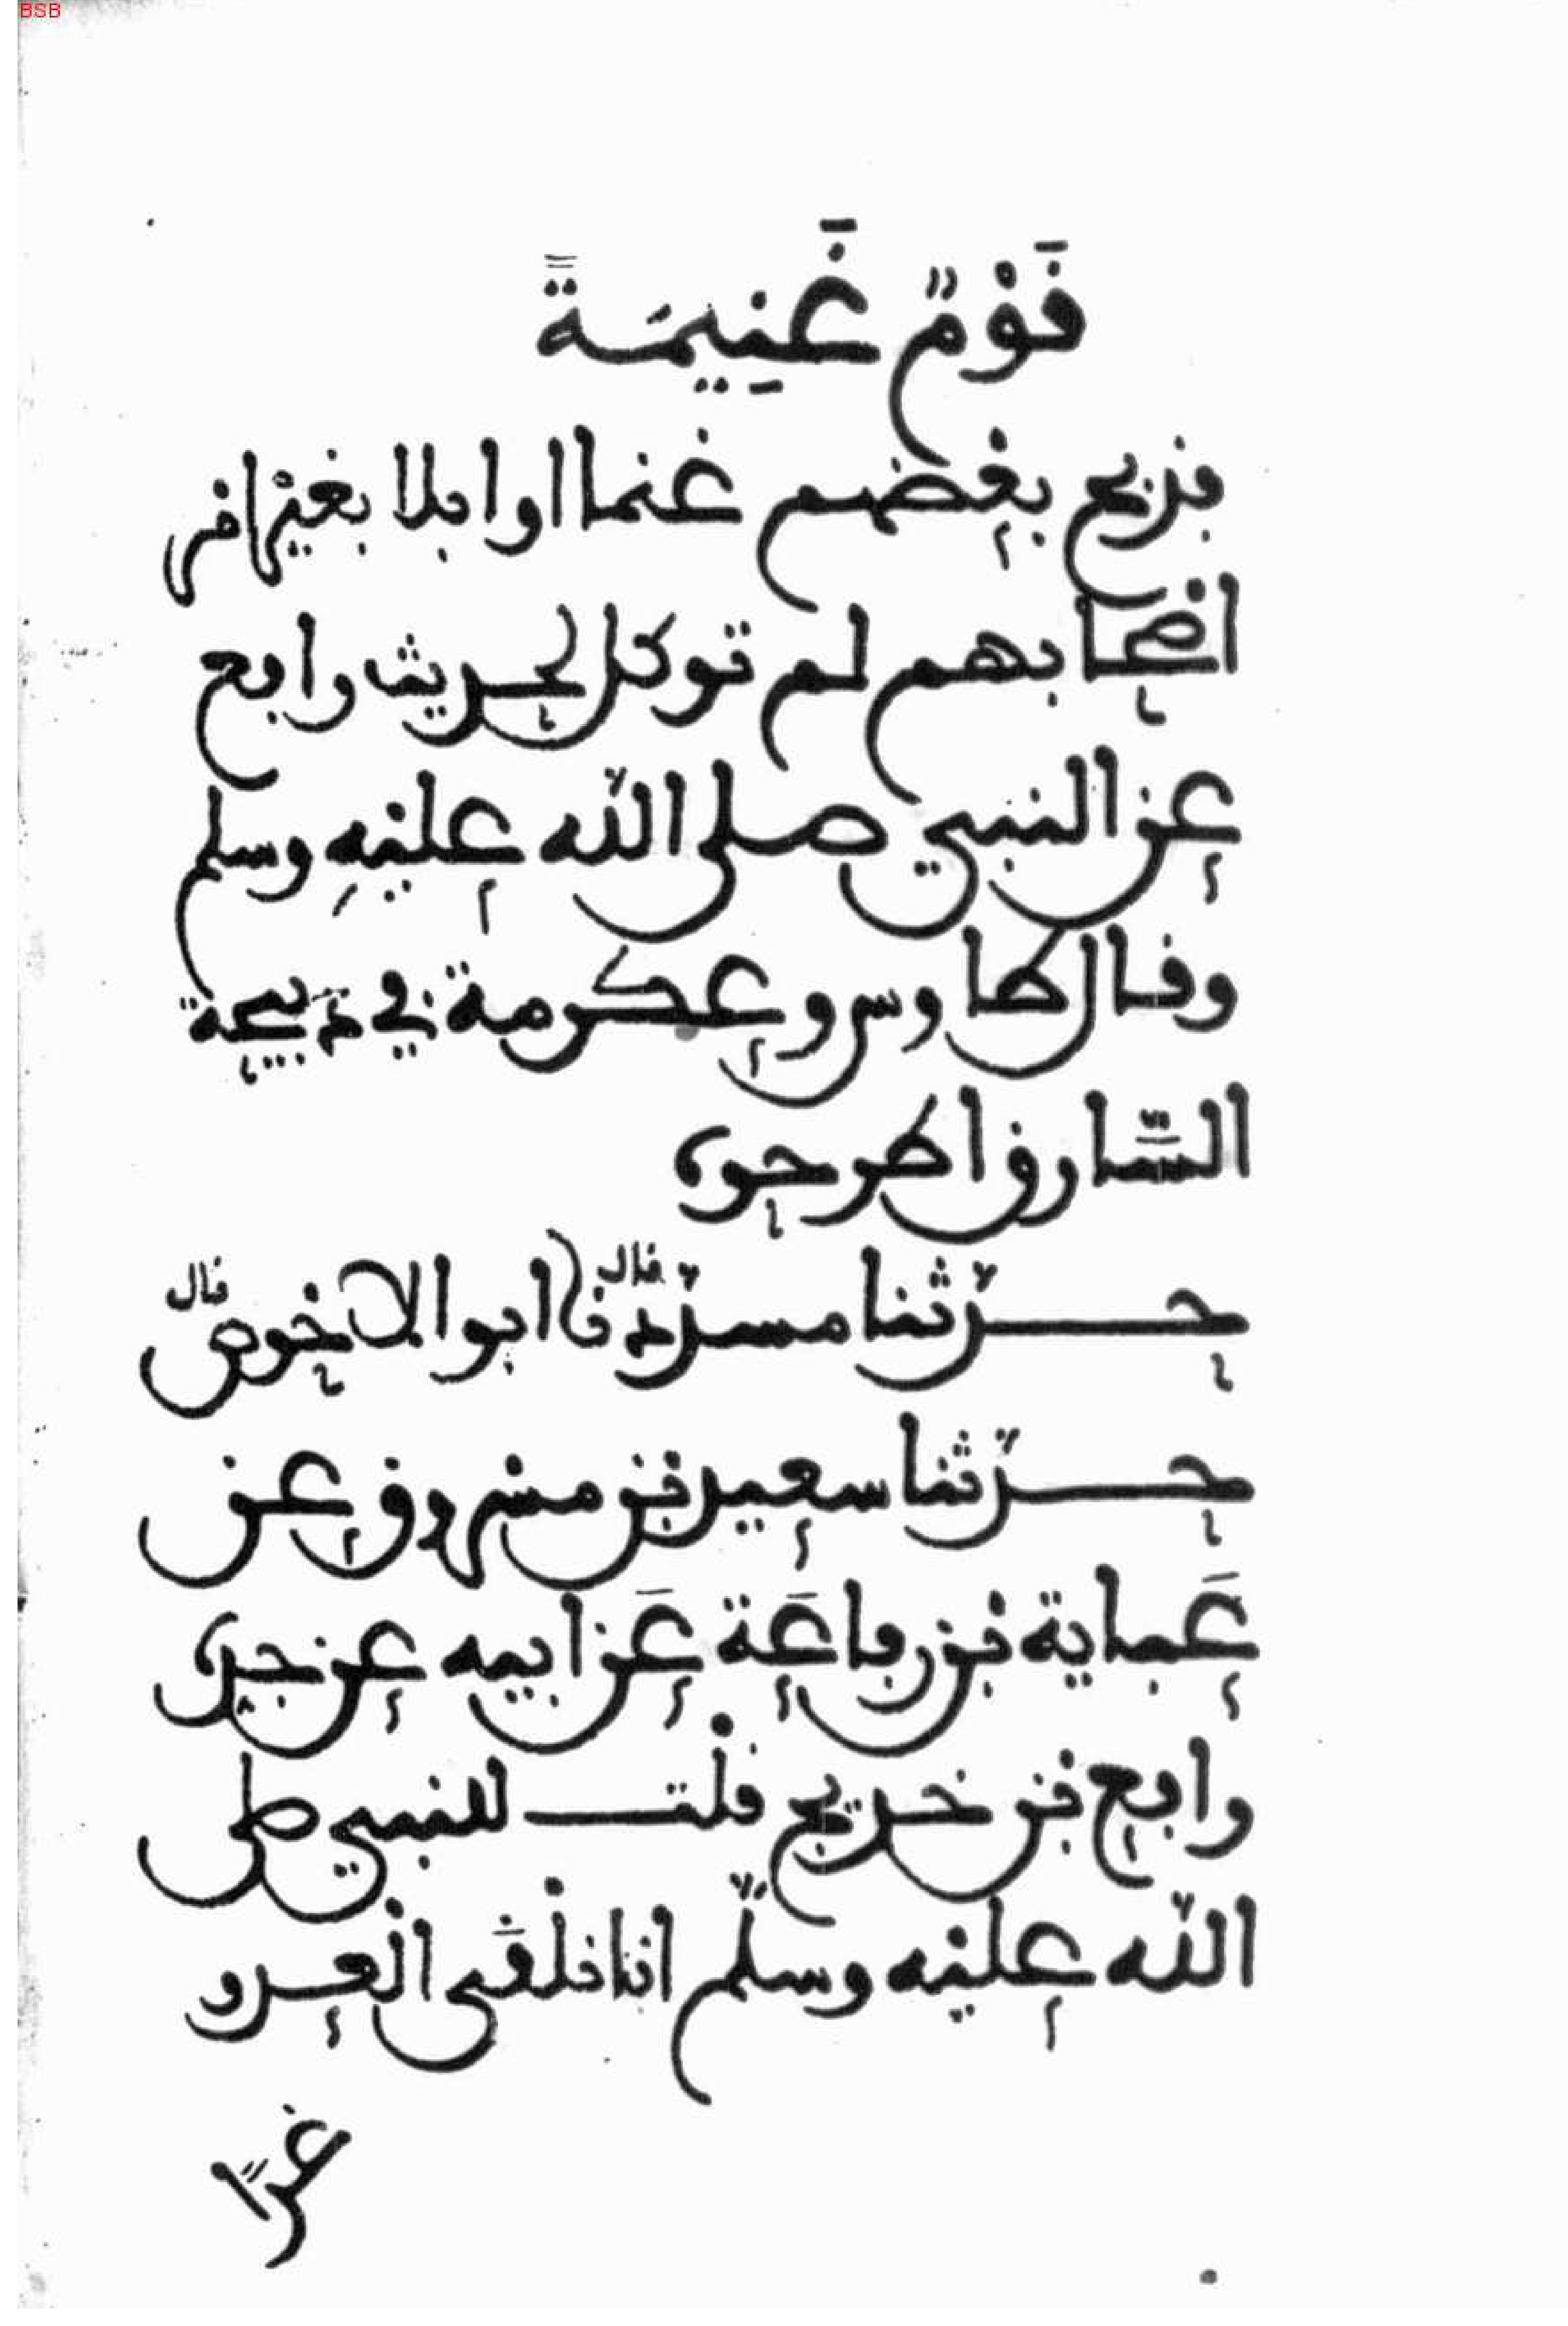 BSB
قَوْمٌ غَنِيمَةً
فذبح بعضهم غنما او ابلا بغير امر
اصحابهم لم توكل لحديث رافع
عن النبي صلى اللّه عليه وسلم
وقال طاوس وعكرمة في ذبيحة
السّارق اطرحوه
حدّثنا مسدّد قال نا ابو الاحوص قال
حدّثنا سعيد بن مسروق عن
عَباية بن رفاعَة عَن ابيه عن جده
رافع بن خديج قلت للنبي صلى
اللّه عليه وسلّم اننا نلْقَى الْعدو
غدًا